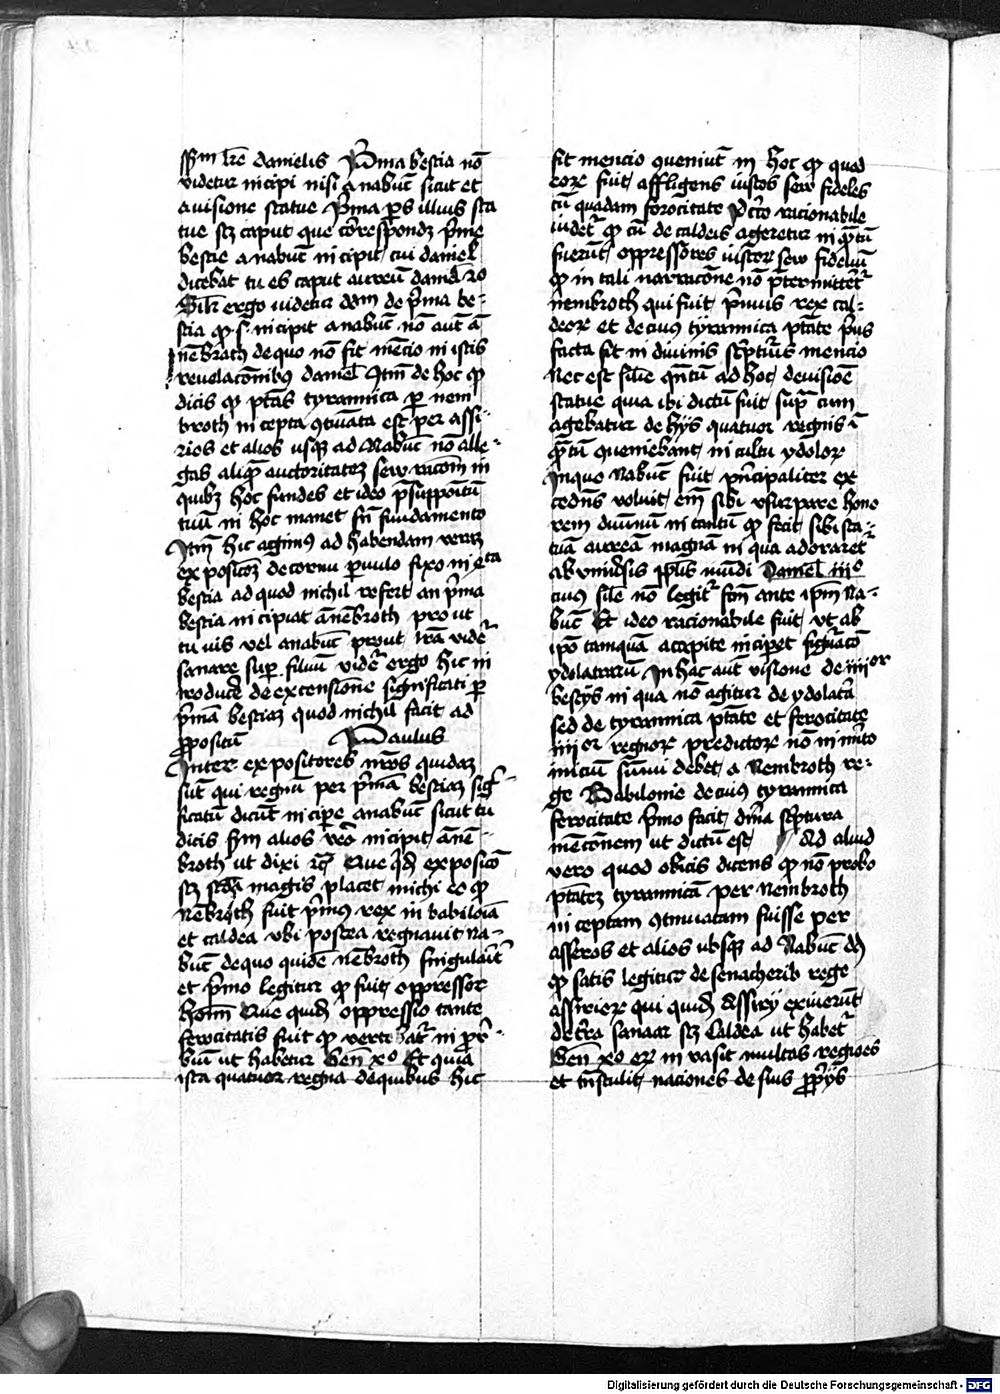 sm lre danielis Prima bestia nō
videtur incipi nisi a nabuc̄ sicut et
a visione statue Prima ps illius sta
tue scz caput que correspondz prime
bestie a nabuc̄ incipit, cui daniel
dicebat tu es caput aureū daniel 2o
Silr ergo videtur dōm de prima be-
stia qp s. incipit a nabuc̄ nō aut̄ a
nēbroth de quo nō fit mēcio in istis
revelacōnibus daniel Itm de hoc qp
dicis qp ptās tyrannica p nem
broth incepta cōtinuata est per assi-
rios et alios usqz ad Nabuc̄ nō alle-
gas aliqua auctoritatez seu racōm in
quibz hoc fundes et ideo psuppoītū
tuū in hoc manet sn fundamento
Itm hic agimus ad habendam veraz
exposicōz de cornu pvulo fixo in 4ta
bestia ad quod nichil refert an prima
bestia incipiat a nēbroth prout
tu vis vel a nabuc̄ prout lrā vidēr
sonare super filium vidēr ergo hic in
producē de extensione significati p
primā bestiaz quod nichil facit ad
propositū Paulus
Inter expositores nros quidaz
sūt qui regnū per primā bestiaz sig
ficatū dicūt incipere a nabuc̄ sicut tu
dicis sm alios vero incipit a nē-
broth ut dixi Que qdē exposicō
scz scda magis placet michi eo qp
Nēbroth fuit primus rex in babiloia
et caldea ubi postea regnavit Na-
buc̄ de quo quidē nēbroth singularit
et primo legitur qp fuit oppressor
hoīm Que quidē oppressio tante
ferocitatis fuit qp verteb atr in pr-
biū ut habetur Gen̄ xo Et quia
ista quatuor regna de quibus hic
fit mencio queniūt in hoc qp quod
eorz fuit affligens iustos seu fideles
cū quadam ferocitate Pcto racionabile
videtr qp cū de caldeis ageretur in qtū
fuerūt oppressores iustorz seu fideliū
qp in tali narracōne nō ptermittetr
nembroth qui fuit primus rex cal-
deorz et de cuius tyrannica ptate prius
facta sit in divinis scpturis mencio
Nec est sile qntū ad hoc de visioē
statue quia ibi dictū fuit supra cum
agebatur de hys quatuor regnis ī
qtū queniebant in cultu ydolorz
In quo Nabuc̄ fuit principaliter ex
cedens voluit em̄ sibi usurpare hono
rem divinū in tantū qp fecit sibi sta-
tuā aureā magnā in qua adoraretr
ab universis pplis mūdi Daniel iiio
cuius sile nō legitr fcm ante ipm Na-
buc̄ Et ideo racionabile fuit ut ab
ipo tamquā a capite incipet figuracō
ydolatrarū In hac aut̄ visione de iiiior
bestys in qua nō agitur de ydolatra
sed de tyrannica ptate et ferocitate
iiiior regnorz predictorz nō inmito
iniciū sumi debet a Nembroth re-
ge Babilonie de cuius tyrannica
ferocitate primo facit divina scptura
mēcōnem ut dictū est Ad aliud
vero quod obicis dicens qp nō probo
ptatez tyrannicā per Nembroth
inceptam cōtinuatam fuisse per
assiros et alios usqz ad Nabuc̄
qp satis legitur de senacherib rege
assiriorz qui quidē Assirii exiverūt
de tra sanaar scz Caldea ut habetr
Gen xo in vasit multas regiōes
et trastulit naciones de suis pprys